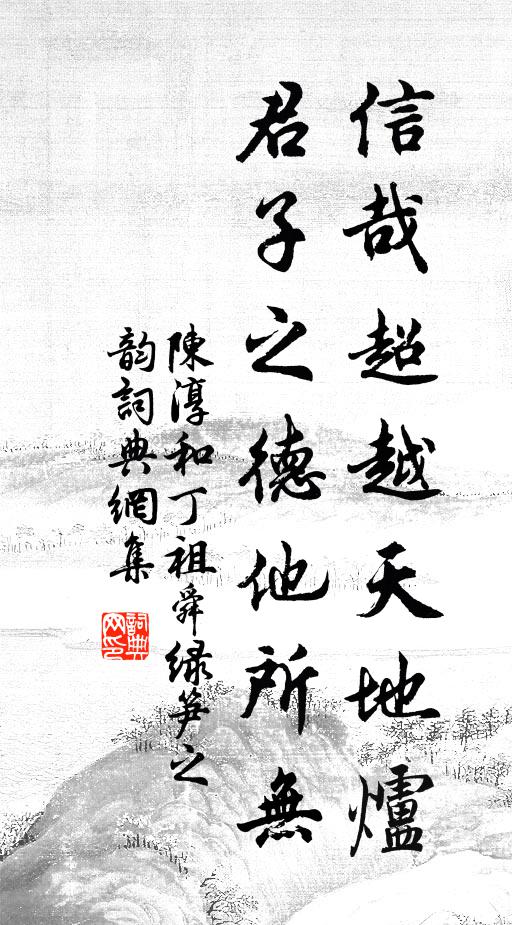 信哉超越天地爐
君子之德他所無
陳淳和丁祖舜緑笋之
韵詞典網集
詞典网